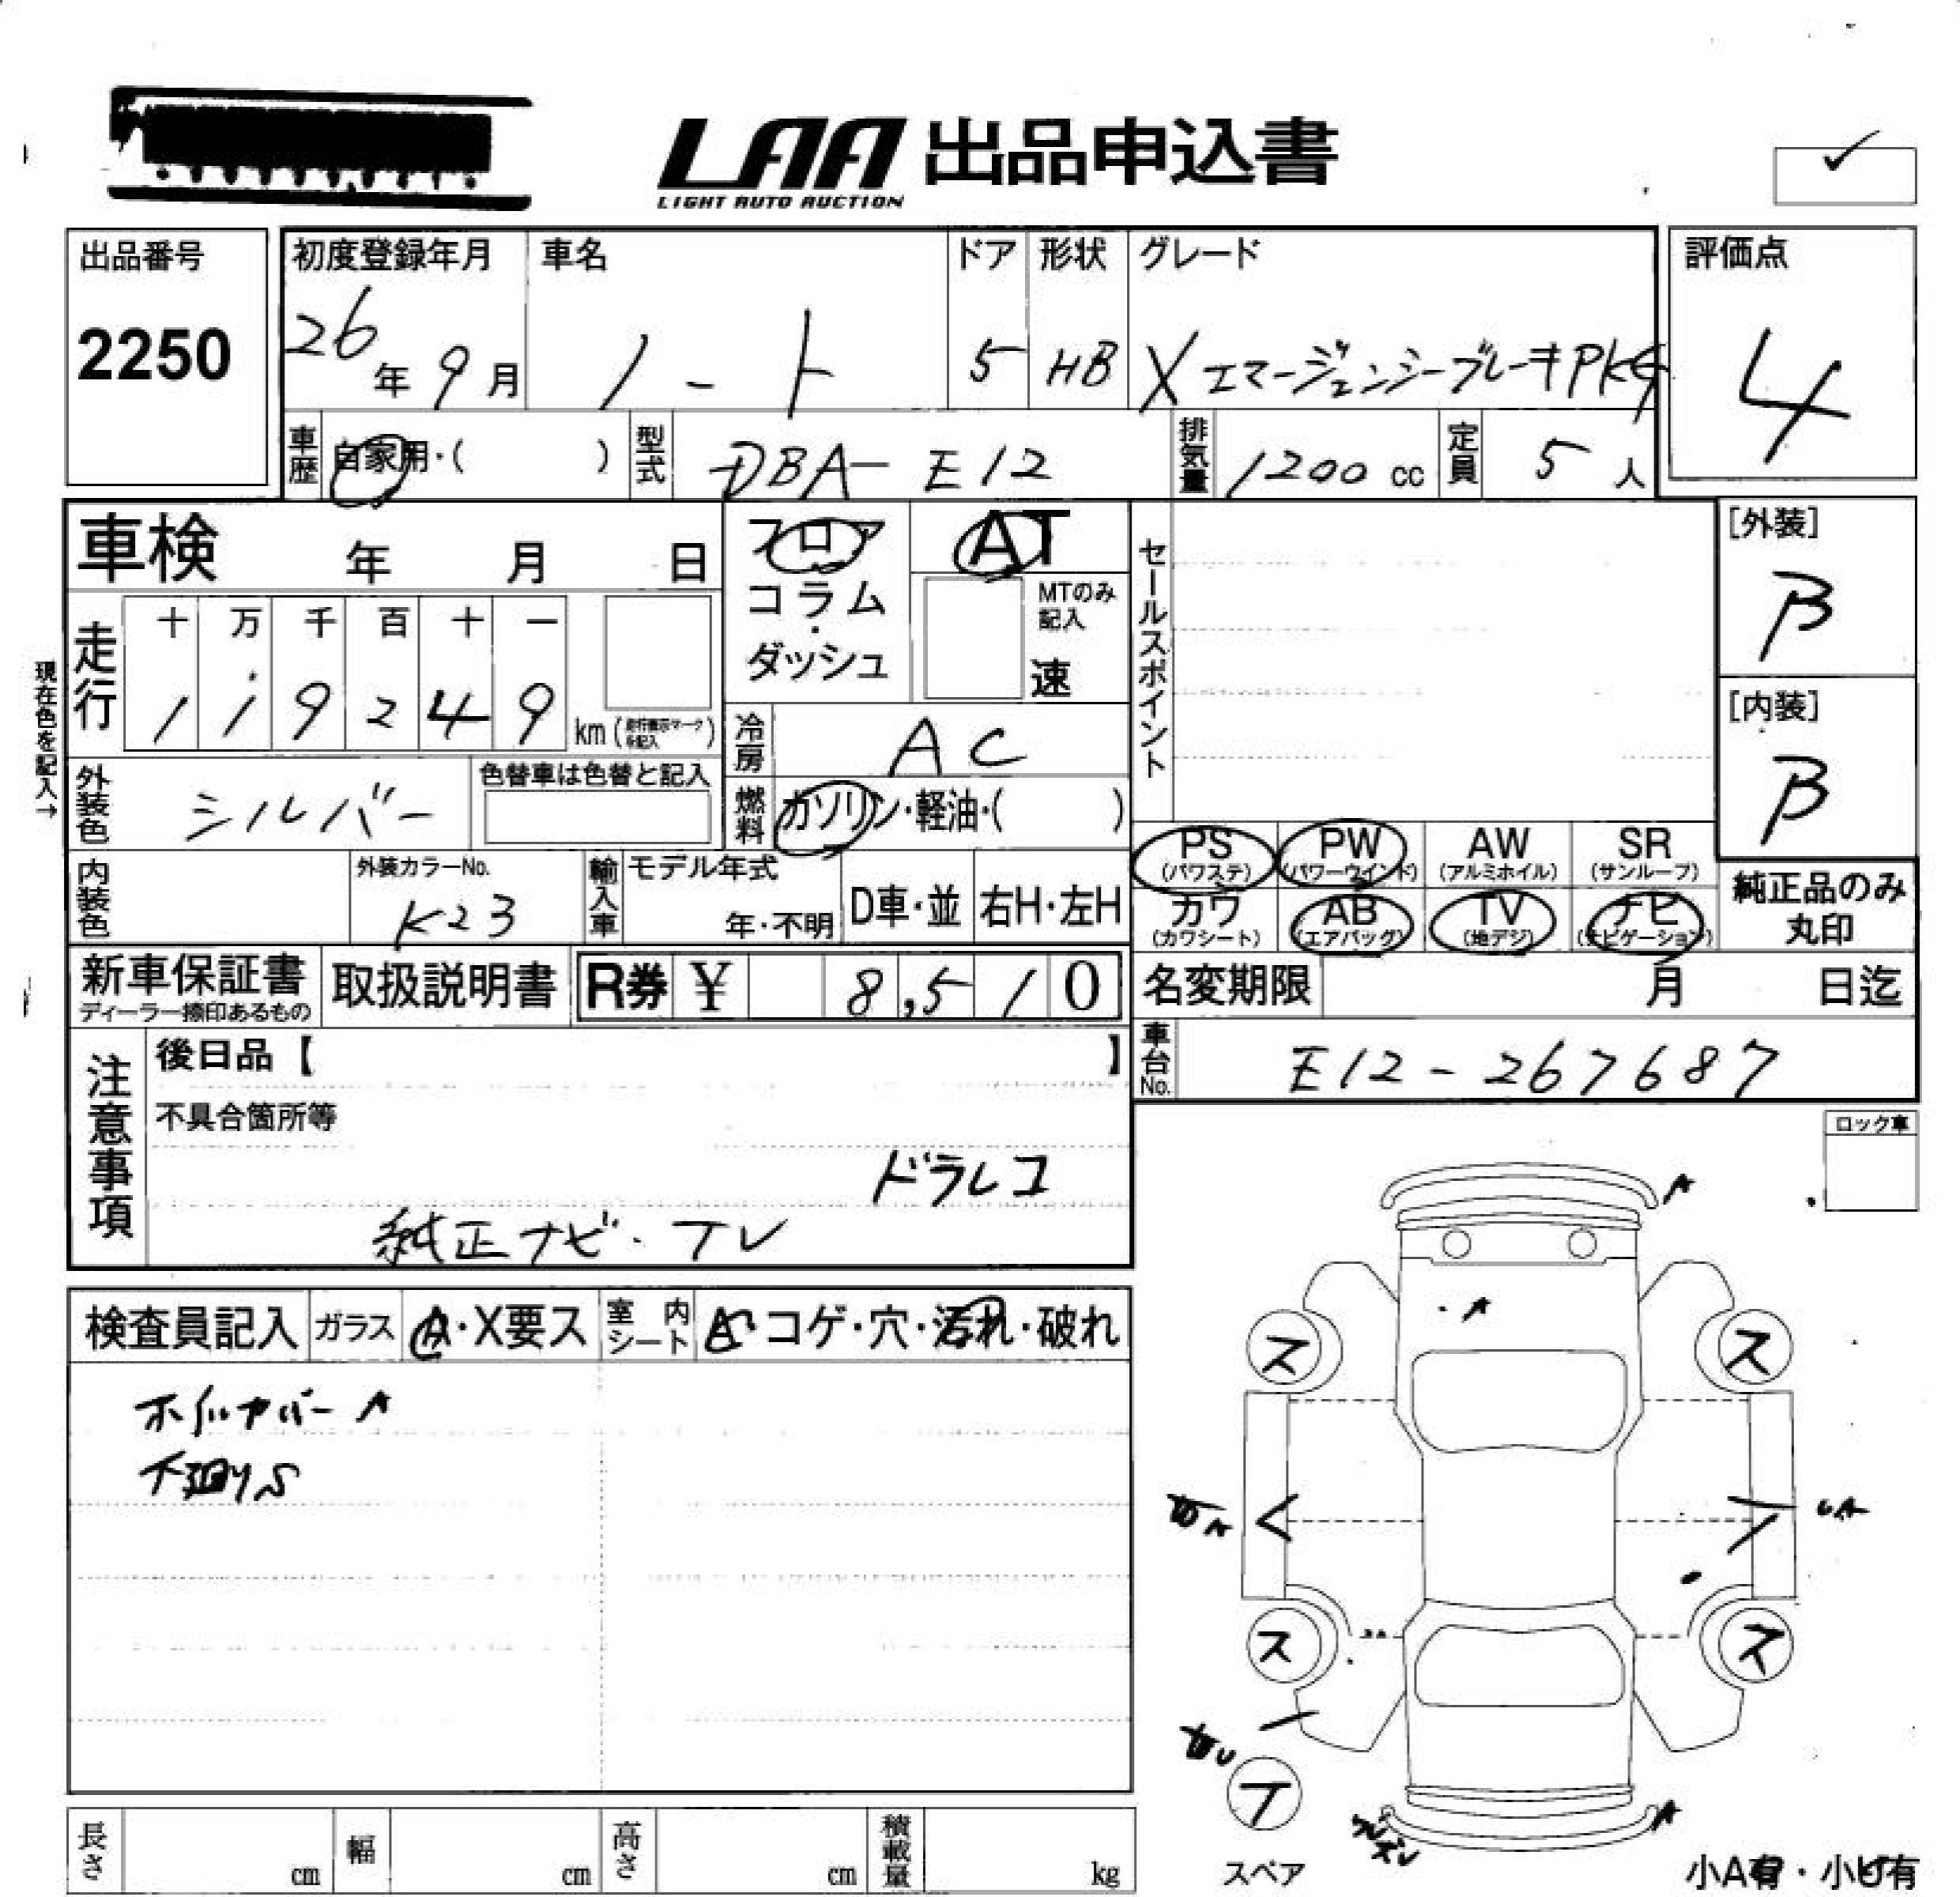 LAA 出品申込書
LIGHT AUTO AUCTION
出品番号
2250
初度登録年月
26年 9月
車名
ノート
ドア
5
形状
HB
グレード
X エマージェンシーブレーキPKG
評価点
4
車歴
自家用・( )
型式
DBA-E12
排気量
1200 cc
定員
5人
車検 年 月 日
フロア
コラム・
ダッシュ
AT
MTのみ
記入
速
セールスポイント
[外装]
B
現在色を記入→
走行
十 万 千 百 十 一
1 1 9 2 4 9 km
[内装]
B
冷房
AC
外装色
シルバー
色替車は色替と記入
燃料
ガソリン・軽油・( )
PS
(パワステ)
PW
(パワーウインド)
AW
(アルミホイル)
SR
(サンルーフ)
内装色
外装カラーNo.
K23
輸入車
モデル年式
年・不明
D車・並
右H・左H
カワ
(カワシート)
AB
(エアバッグ)
TV
(地デジ)
ナビ
(ナビゲーション)
純正品のみ
丸印
新車保証書
ディーラー捺印あるもの
取扱説明書
R券 ¥ 8,510
名変期限 月 日迄
注意事項
後日品【 】
車台No.
E12-267687
不具合箇所等
ドラレコ
純正ナビ・TV
ロック車
A
検査員記入
ガラス
A・X要ス
室内
シート
A・コゲ・穴・汚れ・破れ
A
ス
ス
ホイルカバーA
下廻りS
A
ス
ス
U
テ
スペア
A
長さ cm
幅 cm
高さ cm
積載量 kg
小A有・小U有